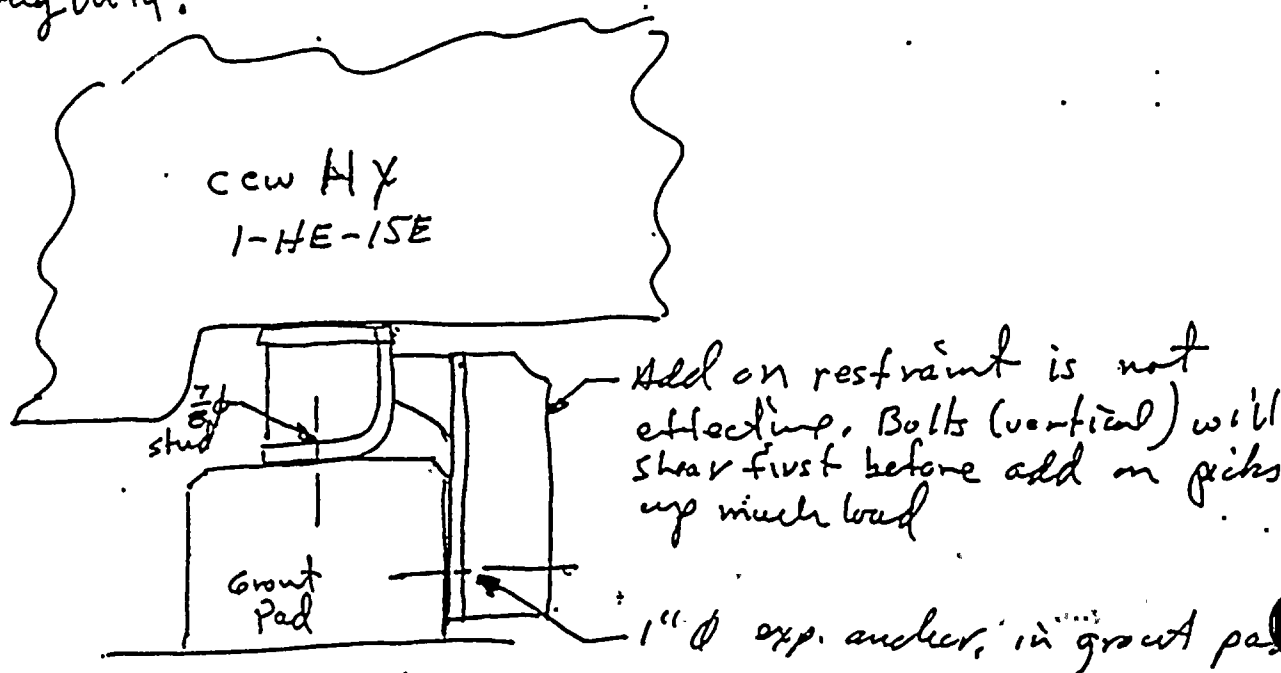 CCW HX
1-HE-15E
7/8 φ
stud
Add on restraint is not
effective. Bolts (vertical) will
shear first before add on picks
up much load
Grout
Pad
1" φ exp. anchor, in grout pad